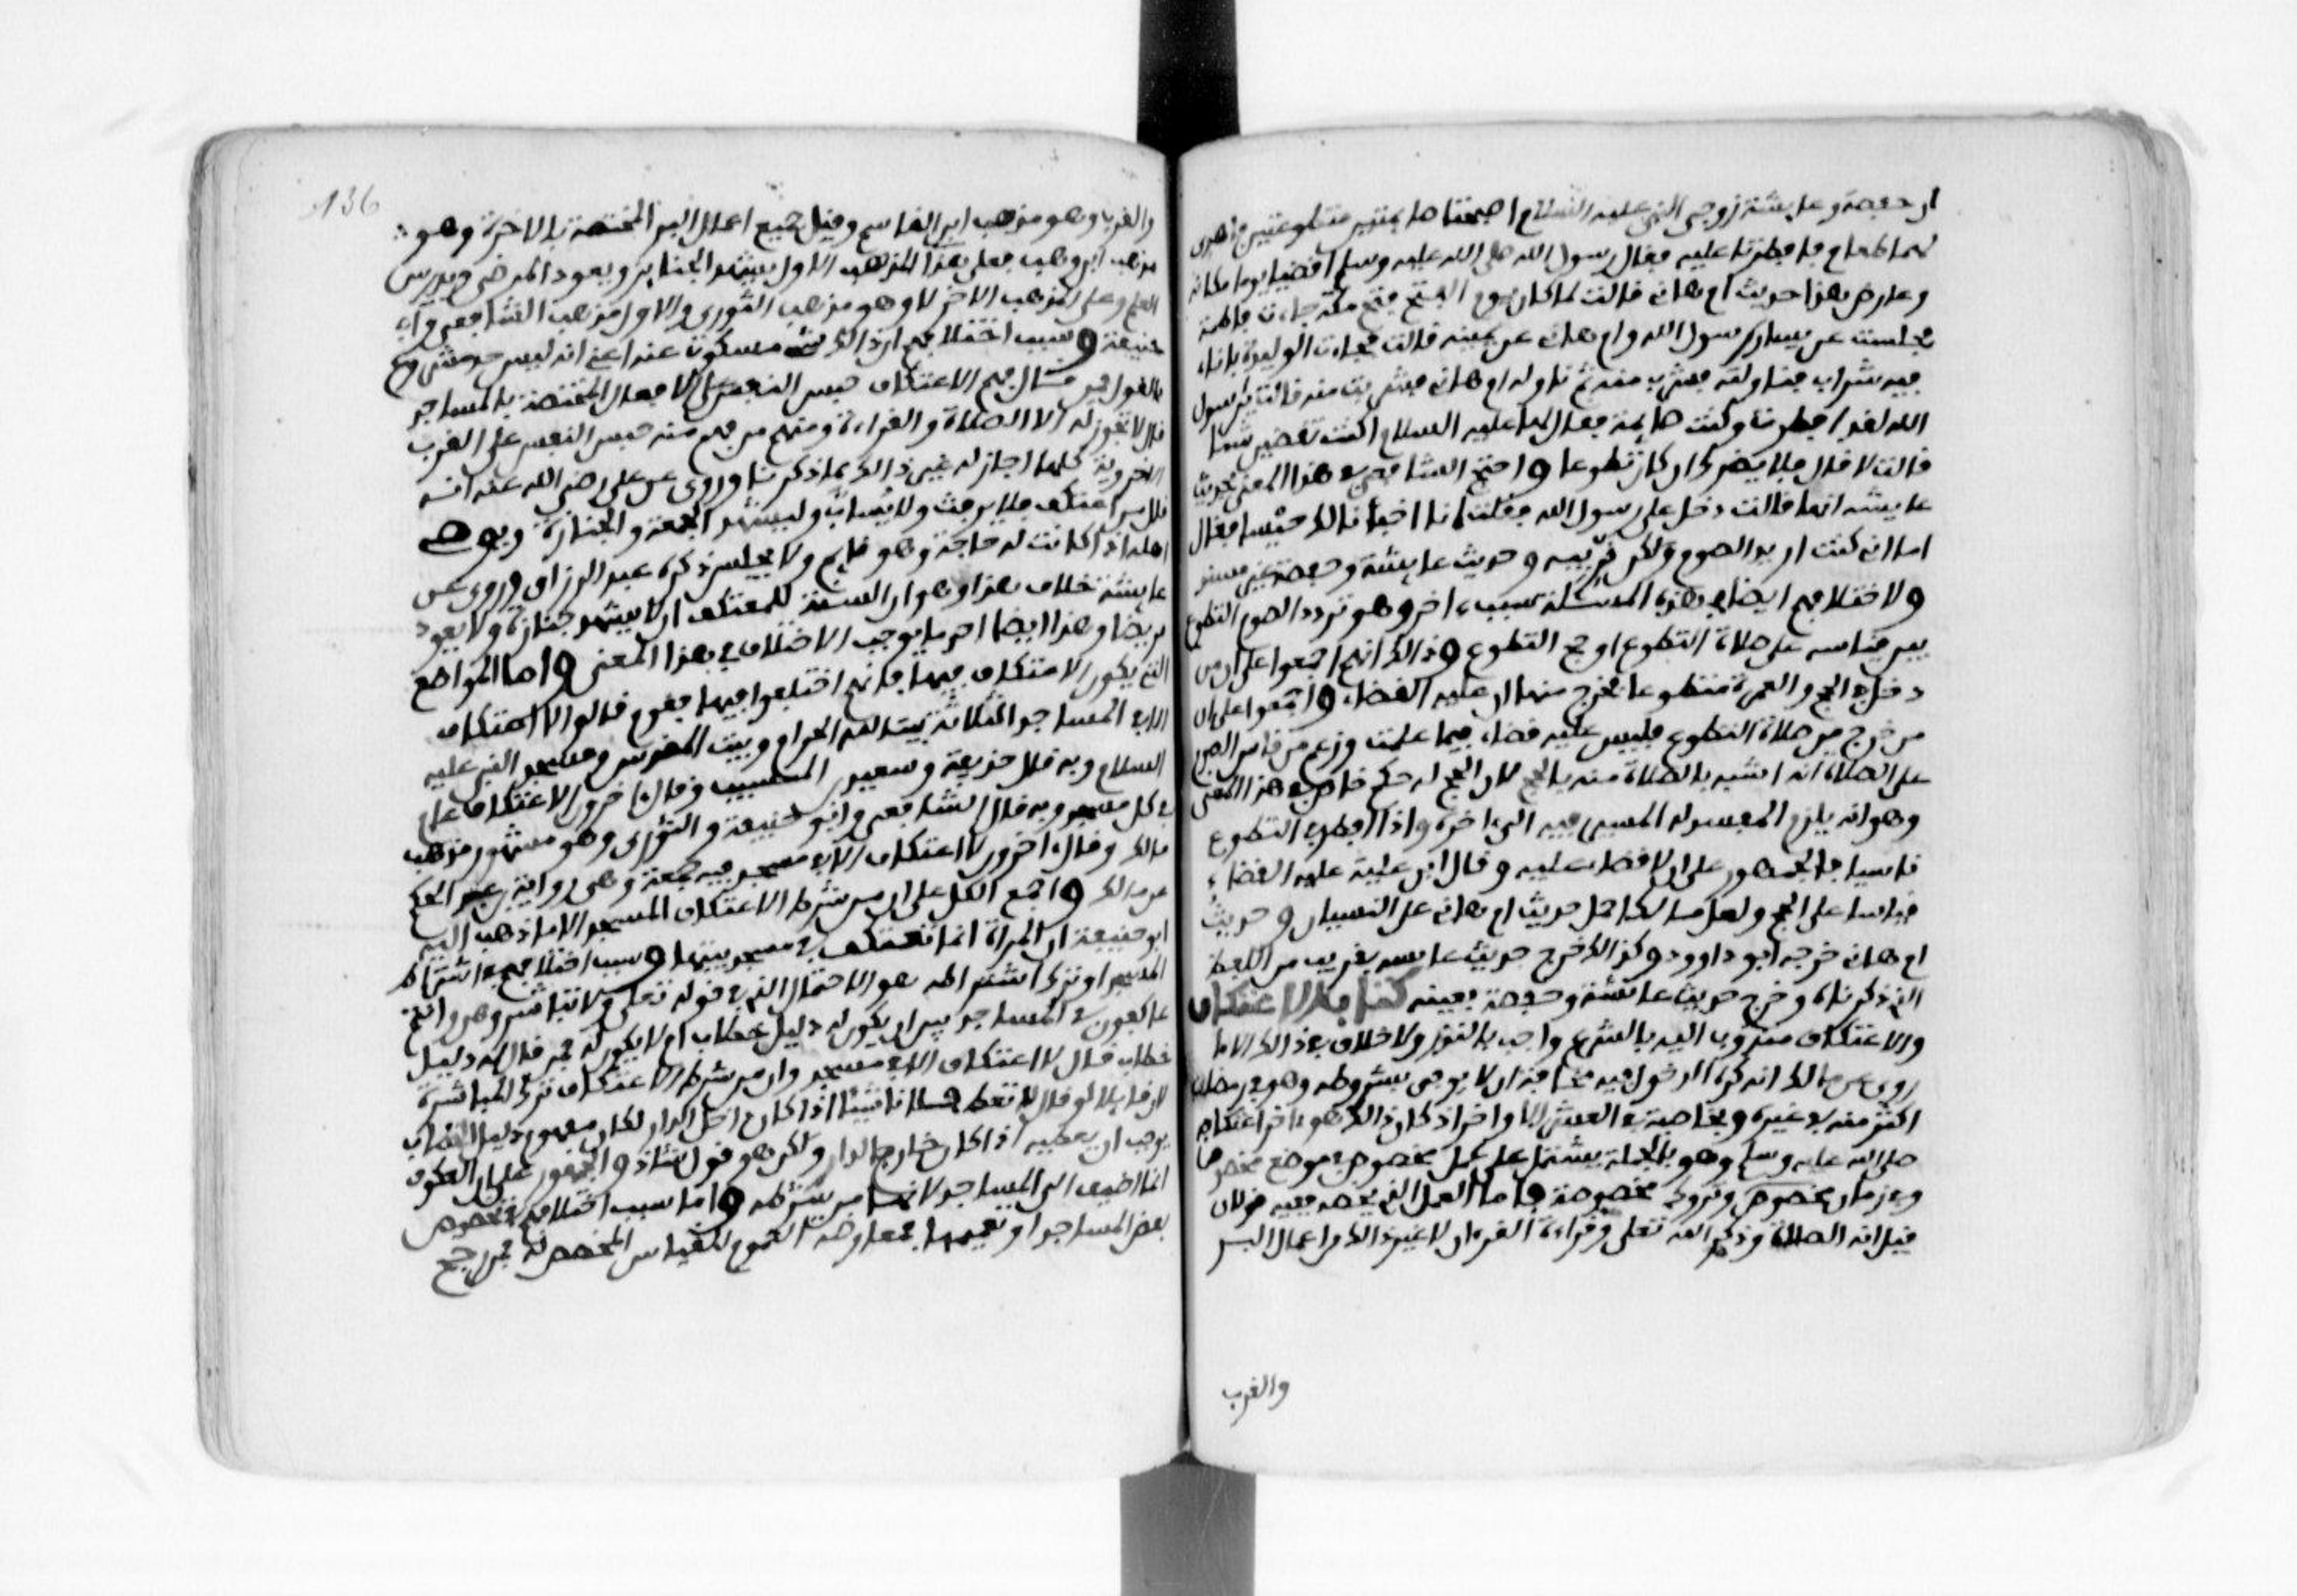 ان حفصة وعايشة زوجي النبي عليه السلام اصبحتا صايمتين متطوعتين فاهدي
لهما طعام فافطرتا عليه فقال رسول الله صلى الله عليه وسلم اقضيا يوما مكانه
وعارض هذا حديث ام هانى قالت لما كان يوم الفتح فتح مكة جاءت فاطمة
فجلست عن يسار رسول الله وام هانى عن يمينه قالت فجاءت الوليدة باناء
فيه شراب فناولته فشرب منه ثم ناوله ام هانى فشربت منه فالت يرسول
الله لقد افطرت وكنت صايمة فقال لها عليه السلام اكنت تقضين شيئا
قالت لا قال فلا يضرك ان كان تطوعا واحتج الشافعي في هذا المعنى بحديث
عايشه انها قالت دخل علي رسول الله فقلت انا اخبأنا لك حيسا فقال
اما انى كنت اريد الصوم ولكن قربيه وحديث عايشة وحفصة غير مسند
ولاختلافهم ايضا في هذه المسئلة سبب ءاخر وهو تردد الصوم التطوع
بين قياسه على صلاة التطوع او حج التطوع وذالك انهم اجمعوا على ان من
دخل في الحج والعمرة متطوعا يخرج منها ان عليه القضاء واجمعوا على ان
من خرج من صلاة التطوع فليس عليه قضاء فيما علمت وزعم من قاس الصوم
على الصلاة انه اشبه بالصلاة منه بالحج لان الحج له حكم خاص في هذا المعنى
وهو انه يلزم المفسد له المسير فيه الى ءاخره واذا افطر في التطوع
ناسيا فالجمهور على ان لا قضاء عليه وقال ابن علية عليه القضاء
قياسا على الحج ولعل مالكا حمل حديث ام هانى على النسيان وحديث
ام هانى خرجه ابو داوود وكذالك خرج حديث عايشه بقريب من اللفظ
الذي ذكرناه وخرج حديث عائشة وحفصة بعينه كتاب الاعتكاف
والاعتكاف مندوب اليه بالشرع واجب بالنذر ولا خلاف في ذالك الا ما
روى عن مالك انه كره الدخول فيه مخافة ان لا يوفى بشروطه وهو في رمضان
اكثر منه في غيره وبخاصة في العشر الاواخر اذ كان ذالك هو ءاخر اعتكافه
صلى الله عليه وسلم وهو بالجملة يشتمل على عمل مخصوص في موضع مخصوص
وفي زمان مخصوص وتروك مخصوصة فاما العمل الذي يخصه ففيه قولان
قيل انه الصلاة وذكر الله تعلى وقراءة القرءان لا غير ذالك من اعمال البر
والقرب
136
والقرب وهو مذهب ابن القاسم وقيل جميع اعمال البر المختصة بالاخرة وهو
مذهب ابن وهب فعلى هذا المذهب الاول يشهد الجنايز ويعود المرضى ويدرس
العلم وعلى المذهب الاخر لا وهو مذهب الثوري والاول مذهب الشافعي وابي
حنيفة وسبب اختلافهم ان ذالك شيء مسكوت عنه اعني انه ليس فيه حد مشروع
بالقول فمن فهم من الاعتكاف حبس النفس على الافعال المختصة بالمساجد
قال لا يجوز له الا الصلاة والقراءة ومنهم من فهم منه حبس النفس على القرب
الاخروية كلها اجاز له غير ذالك مما ذكرنا وروى عن على رضي الله عنه انه
قال من اعتكف فلا يرفث ولا يساب وليشهد الجمعة والجنازة ويوصي
اهله اذا كانت له حاجة وهو قايم ولا يجلس ذكره عبد الرزاق وروى عن
عايشة خلاف هذا وهو ان السنة للمعتكف ان لا يشهد جنازة ولا يعود
مريضا وهذا ايضا احد ما يوجب الاختلاف في هذا المعنى واما المواضع
التي يكون الاعتكاف فيها فانهم اختلفوا فيها فقوم قالوا لا اعتكاف
الا في المساجد الثلاثة بيت الله الحرام وبيت المقدس ومسجد النبي عليه
السلام وبه قال حذيفة وسعيد بن المسيب وقال ءاخرون الاعتكاف عام
في كل مسجد وبه قال الشافعي وابو حنيفة والثوري وهو مشهور مذهب
مالك وقال ءاخرون لا اعتكاف الا في مسجد فيه جمعة وهي رواية ابن عبد الحكم
عن مالك واجمع الكل على ان من شرط الاعتكاف المسجد الا ما ذهب اليه
ابو حنيفة ان المراة انما تعتكف في مسجد بيتها وسبب اختلافهم في اشتراط
المسجد او ترك اشتراطه هو الاحتمال الذي في قوله تعلى ولا تباشروهن وانتم
عاكفون في المساجد بين ان يكون له دليل خطاب ام لا يكون له فمن قال له دليل
خطاب قال لا اعتكاف الا في مسجد وان من شرط الاعتكاف ترك المباشرة
لان قايلا لو قال لا تعط فلانا شيئا اذا كان داخل الدار لكان مفهوم دليل الخطاب
يوجب ان يعطيه اذا كان خارج الدار ولكن هو قول شاذ والجمهور على ان العكوف
انما اضيف الى المساجد لانها من شرطه واما سبب اختلافهم في تخصيص
بعض المساجد او تعميمها فمعارضة العموم للقياس المخصص له فمن رجح